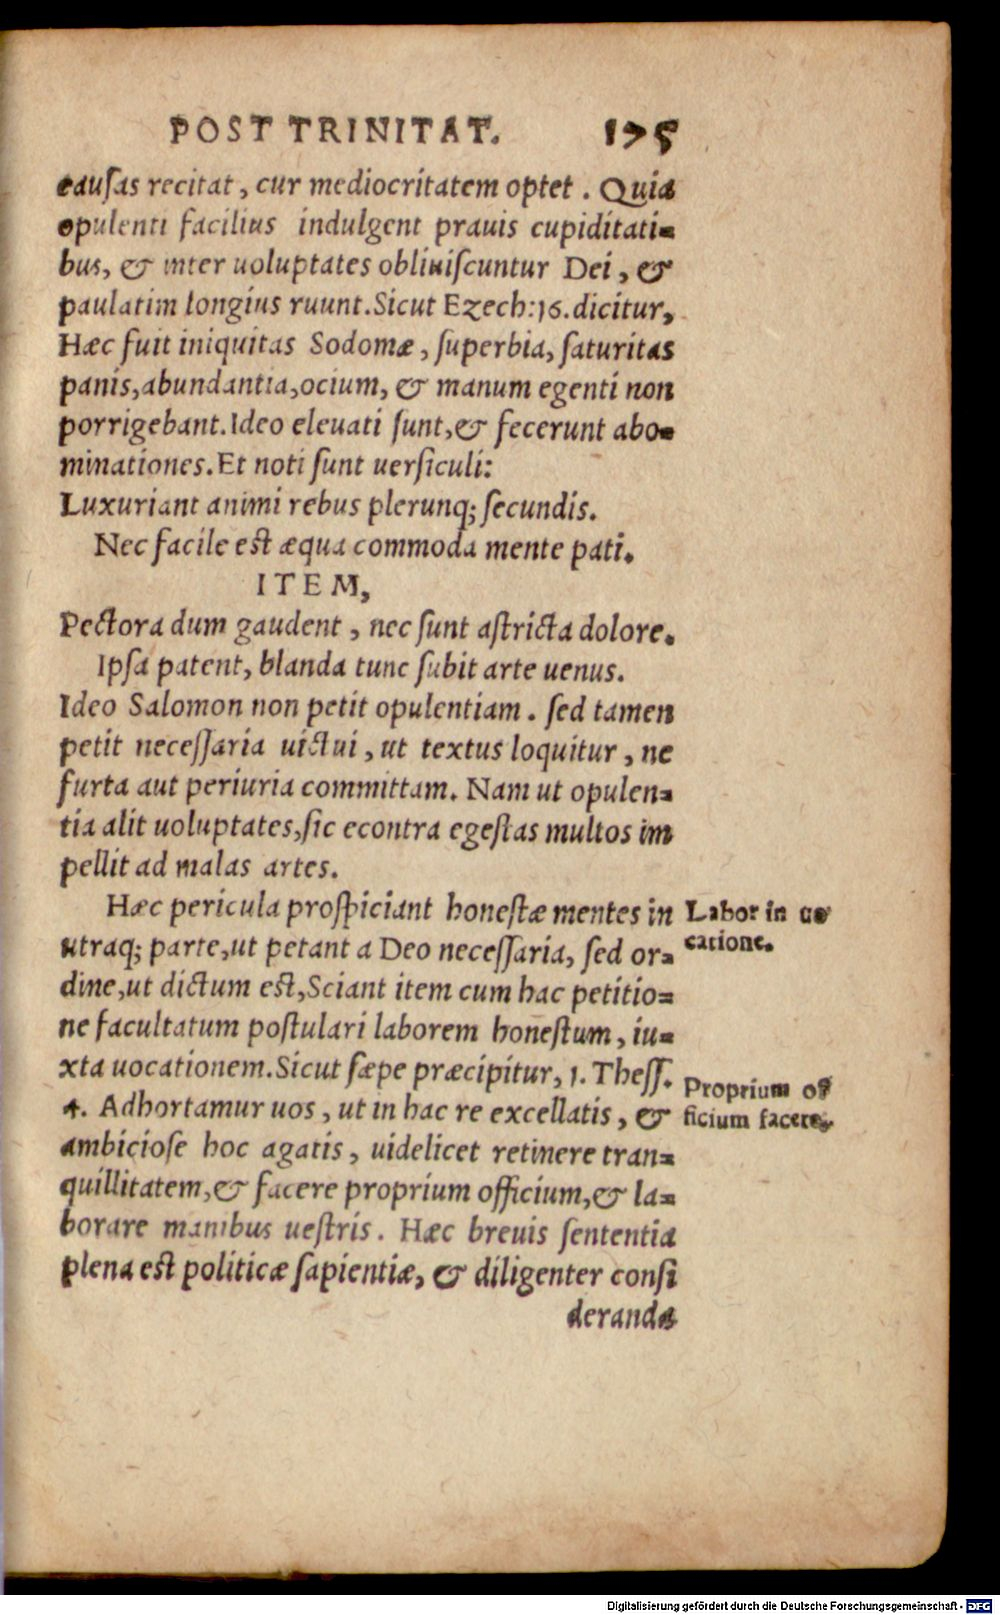 POST TRINITAT. 175
causas recitat, cur mediocritatem optet. Quia
opulenti facilius indulgent prauis cupiditati=
bus, & inter uoluptates obliuiscuntur Dei, &
paulatim longius ruunt. Sicut Ezech: 16. dicitur,
Hæc fuit iniquitas Sodomæ, superbia, saturitas
panis, abundantia, ocium, & manum egenti non
porrigebant. Ideo eleuati sunt, & fecerunt abo=
minationes. Et noti sunt uersiculi:
Luxuriant animi rebus plerunq; secundis.
Nec facile est æqua commoda mente pati.
ITEM,
Pectora dum gaudent, nec sunt astricta dolore.
Ipsa patent, blanda tunc subit arte uenus.
Ideo Salomon non petit opulentiam. sed tamen
petit necessaria uictui, ut textus loquitur, ne
furta aut periuria committam. Nam ut opulen=
tia alit uoluptates, sic econtra egestas multos im
pellit ad malas artes.
Hæc pericula prospiciant honestæ mentes in
utraq; parte, ut petant a Deo necessaria, sed or=
dine, ut dictum est, Sciant item cum hac petitio=
ne facultatum postulari laborem honestum, iu=
xta uocationem. Sicut sæpe præcipitur, 1. Thess.
4. Adhortamur uos, ut in hac re excellatis, &
ambiciose hoc agatis, uidelicet retinere tran=
quillitatem, & facere proprium officium, & la=
borare manibus uestris. Hæc breuis sententia
plena est politicæ sapientiæ, & diligenter consi
deranda
Labor in uo
catione.
Proprium of
ficium facere.
Digitalisierung gefördert durch die Deutsche Forschungsgemeinschaft - DFG